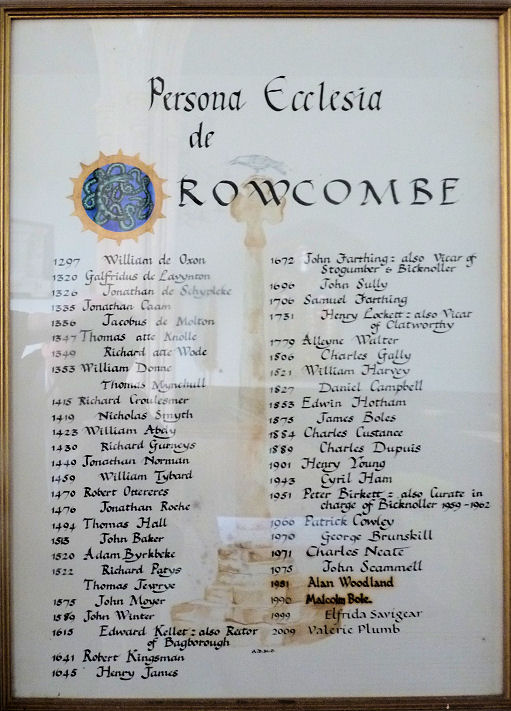 Persona Ecclesia
de
ROWCOMBE
1297 William de Oxon
1320 Galfridus de Lavynton
1326 Jonathan de Schypleke
1335 Jonathan Caam
1336 Jacobus de Molton
1347 Thomas atte Knolle
1349 Richard atte Wode
1353 William Donne
Thomas Mynchull
1415 Richard Croulesmer
1419 Nicholas Smyth
1423 William Abay
1430 Richard Gurneys
1449 Jonathan Norman
1459 William Tybard
1470 Robert Ottereres
1476 Jonathan Roche
1494 Thomas Hall
1513 John Baker
1520 Adam Byrkbeke
1522 Richard Patys
Thomas Jewrye
1575 John Moyer
1589 John Winter
1615 Edward Kellet : also Rator
of Bagborough
1641 Robert Kingsman
1645 Henry James
1672 John Farthing : also Vicar of
Stogumber & Bicknoller
1696 John Sully
1706 Samuel Farthing
1731 Henry Lockett : also Vicar
of Clatworthy
1779 Alleyne Walter
1806 Charles Gully
1821 William Harvey
1827 Daniel Campbell
1853 Edwin Hotham
1875 James Boles
1884 Charles Custance
1889 Charles Dupuis
1901 Henry Young
1943 Cyril Ham
1951 Peter Birkett : also Curate in
charge of Bicknoller 1959-1962
1966 Patrick Cowley
1970 George Brunskill
1971 Charles Neate
1975 John Scammell
1981 Alan Woodland
1990 Malcolm Bole.
1999 Elfrida Savigear
2009 Valerie Plumb